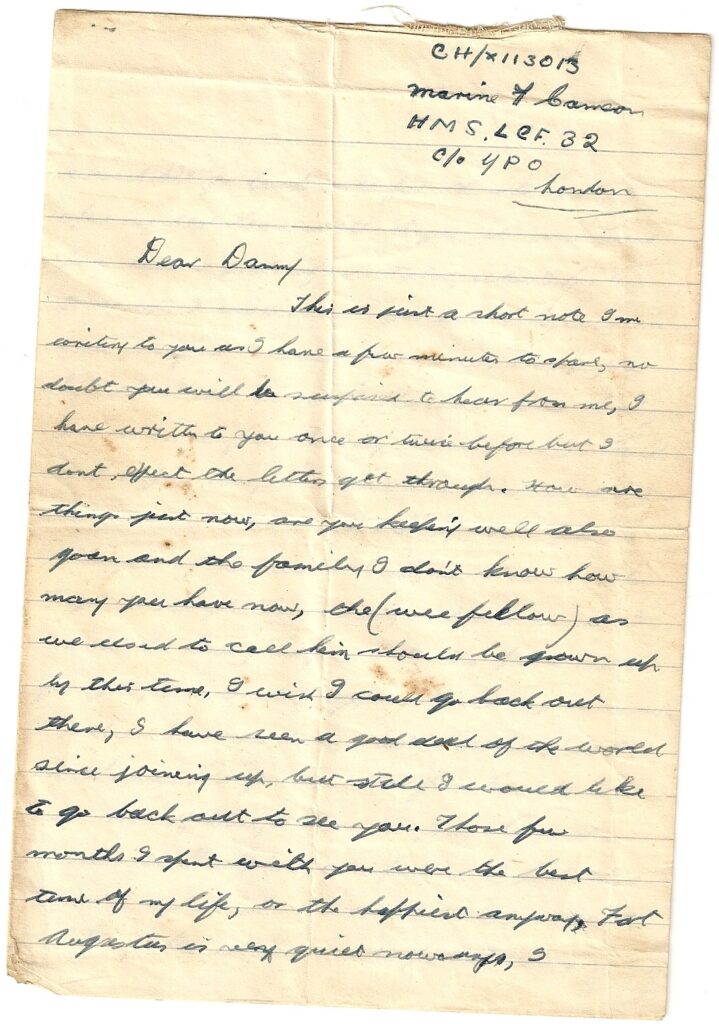 CH/X113013
Marine F Cameron
HMS. LCF. 32
C/o GPO
London
Dear Danny
This is just a short note I'm
writing to you as I have a few minutes to spare, no
doubt you will be surprised to hear from me, I
have written to you once or twice before but I
dont, expect the letters get through. How are
things just now, are you keeping well also
and the family I don't know how
many you have now, the (wee fellow) as
we used to call him should be grown up
by this time, I wish I could go back out
there, I have seen a good deal of the world
since joining up, but still I would like
to go back out to see you. Those few
months I spent with you were the best
time of my life, or the happiest anyway, Fort
Augustus is very quiet nowadays, I